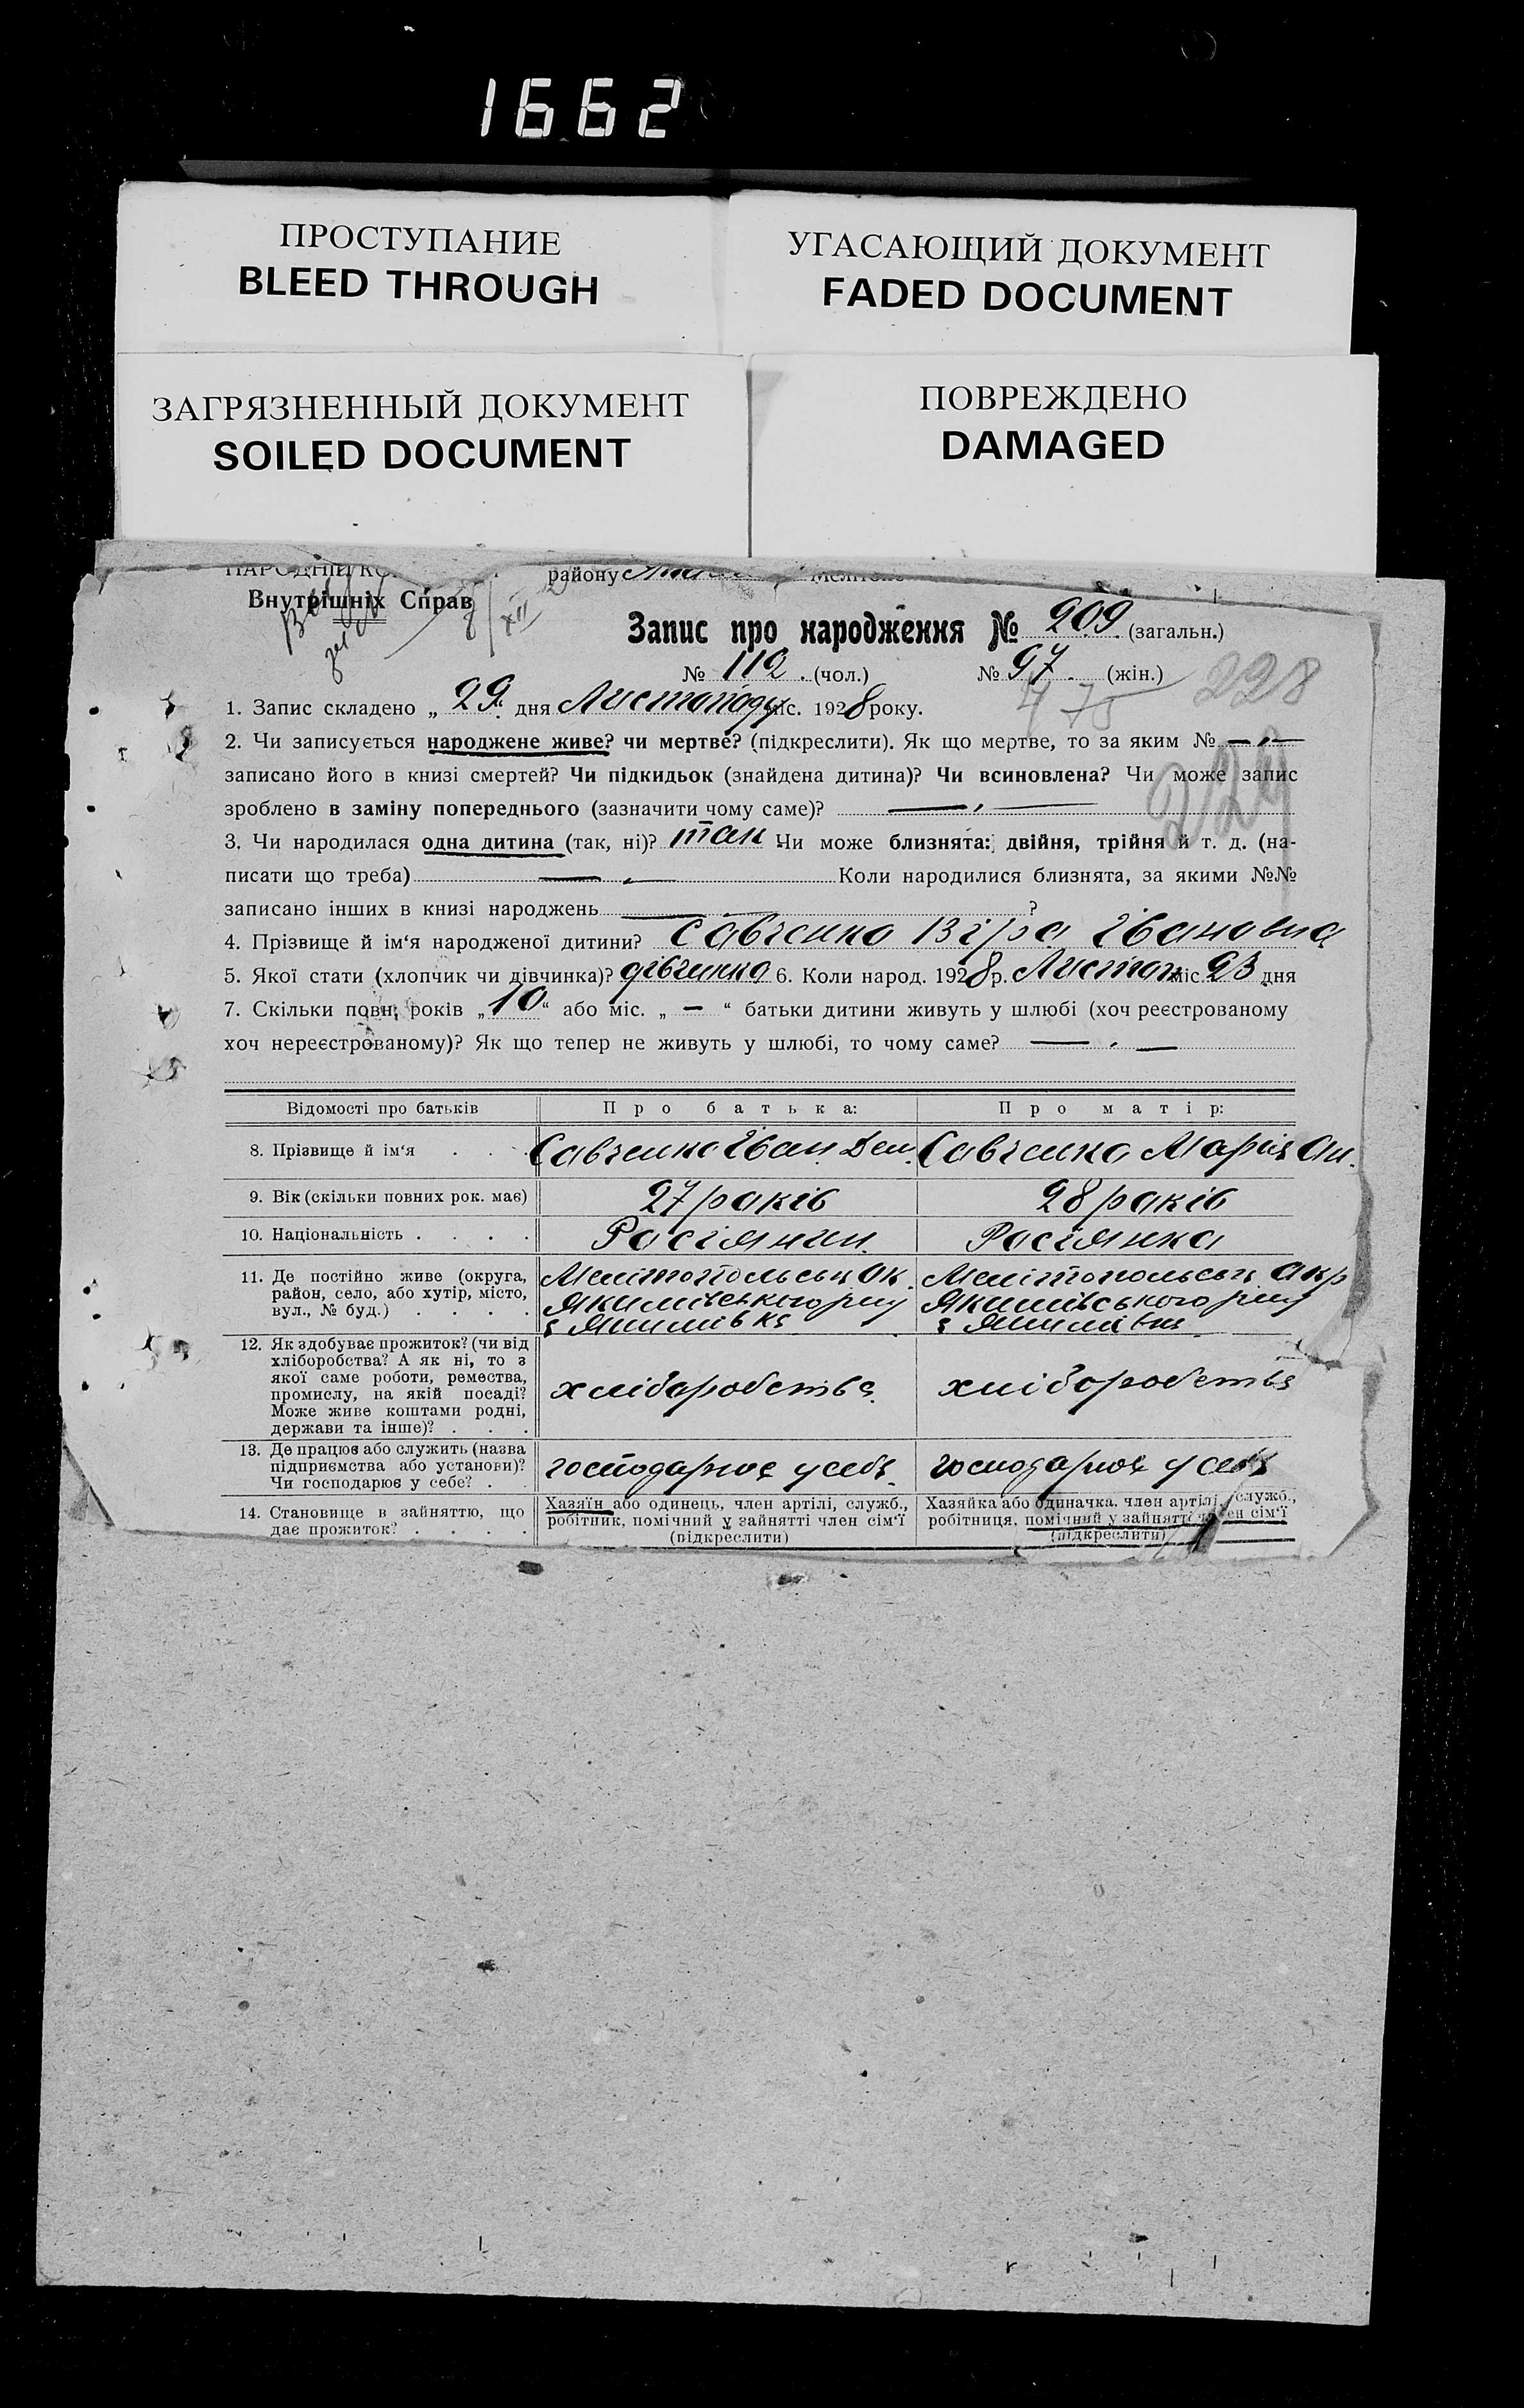 1662
ПРОСТУПАНИЕ
BLEED THROUGH
УГАСАЮЩИЙ ДОКУМЕНТ
FADED DOCUMENT
ЗАГРЯЗНЕННЫЙ ДОКУМЕНТ
SOILED DOCUMENT
ПОВРЕЖДЕНО
DAMAGED
району
Внутрішніх Справ
Запис про народження № 209 (загальн.)
№ 112 (чол.) № 97 (жін.)
475 228
1. Запис складено „29“ дня Листопаду міс. 1928 року.
2. Чи записується народжене живе? чи мертве? (підкреслити). Як що мертве, то за яким № — „ —
записано його в книзі смертей? Чи підкидьок (знайдена дитина)? Чи всиновлена? Чи може запис
зроблено в заміну попереднього (зазначити чому саме)? — „ —
3. Чи народилася одна дитина (так, ні)? так Чи може близнята: двійня, трійня й т. д. (на-
писати що треба) — „ — Коли народилися близнята, за якими №№
записано інших в книзі народжень — — ?
4. Прізвище й ім‘я народженої дитини? Савченко Віра Івановна
5. Якої стати (хлопчик чи дівчинка)? дівчинка 6. Коли народ. 1928 р. Листоп міс. 23 дня
7. Скільки повн. років „10“ або міс. „ — “ батьки дитини живуть у шлюбі (хоч реєстрованому
хоч нереєстрованому)? Як що тепер не живуть у шлюбі, то чому саме? — „ —
Відомості про батьків
Про батька:
Про матір:
8. Прізвище й ім‘я . . .
Савченко Іван Дем.
Савченко Марія Ан.
9. Вік (скільки повних рок. має)
27 років
28 років
10. Національність . . . .
Росіянин.
Росіянка
11. Де постійно живе (округа,
район, село, або хутір, місто,
вул., № буд.) . . . .
Мелітопольськ. Ок.
Якимівського рну
с Якимівка
Мелітопольськ. Окр
Якимівського рну
с Якимівка
12. Як здобуває прожиток? (чи від
хліборобства? А як ні, то з
якої саме роботи, ремества,
промислу, на якій посаді?
Може живе коштами родні,
держави та інше)? . . .
хліборобства
хліборобства
13. Де працює або служить (назва
підприємства або установи)?
Чи господарює у себе? . .
господарює у себе
господарює у себе
14. Становище в зайняттю, що
дає прожиток? . . . .
Хазяїн або одинець, член артілі, служб.,
робітник, помічний у зайнятті член сім‘ї
(підкреслити)
Хазяйка або одиначка, член артілі, служб.,
робітниця, помічний у зайнятті член сім‘ї
(підкреслити)